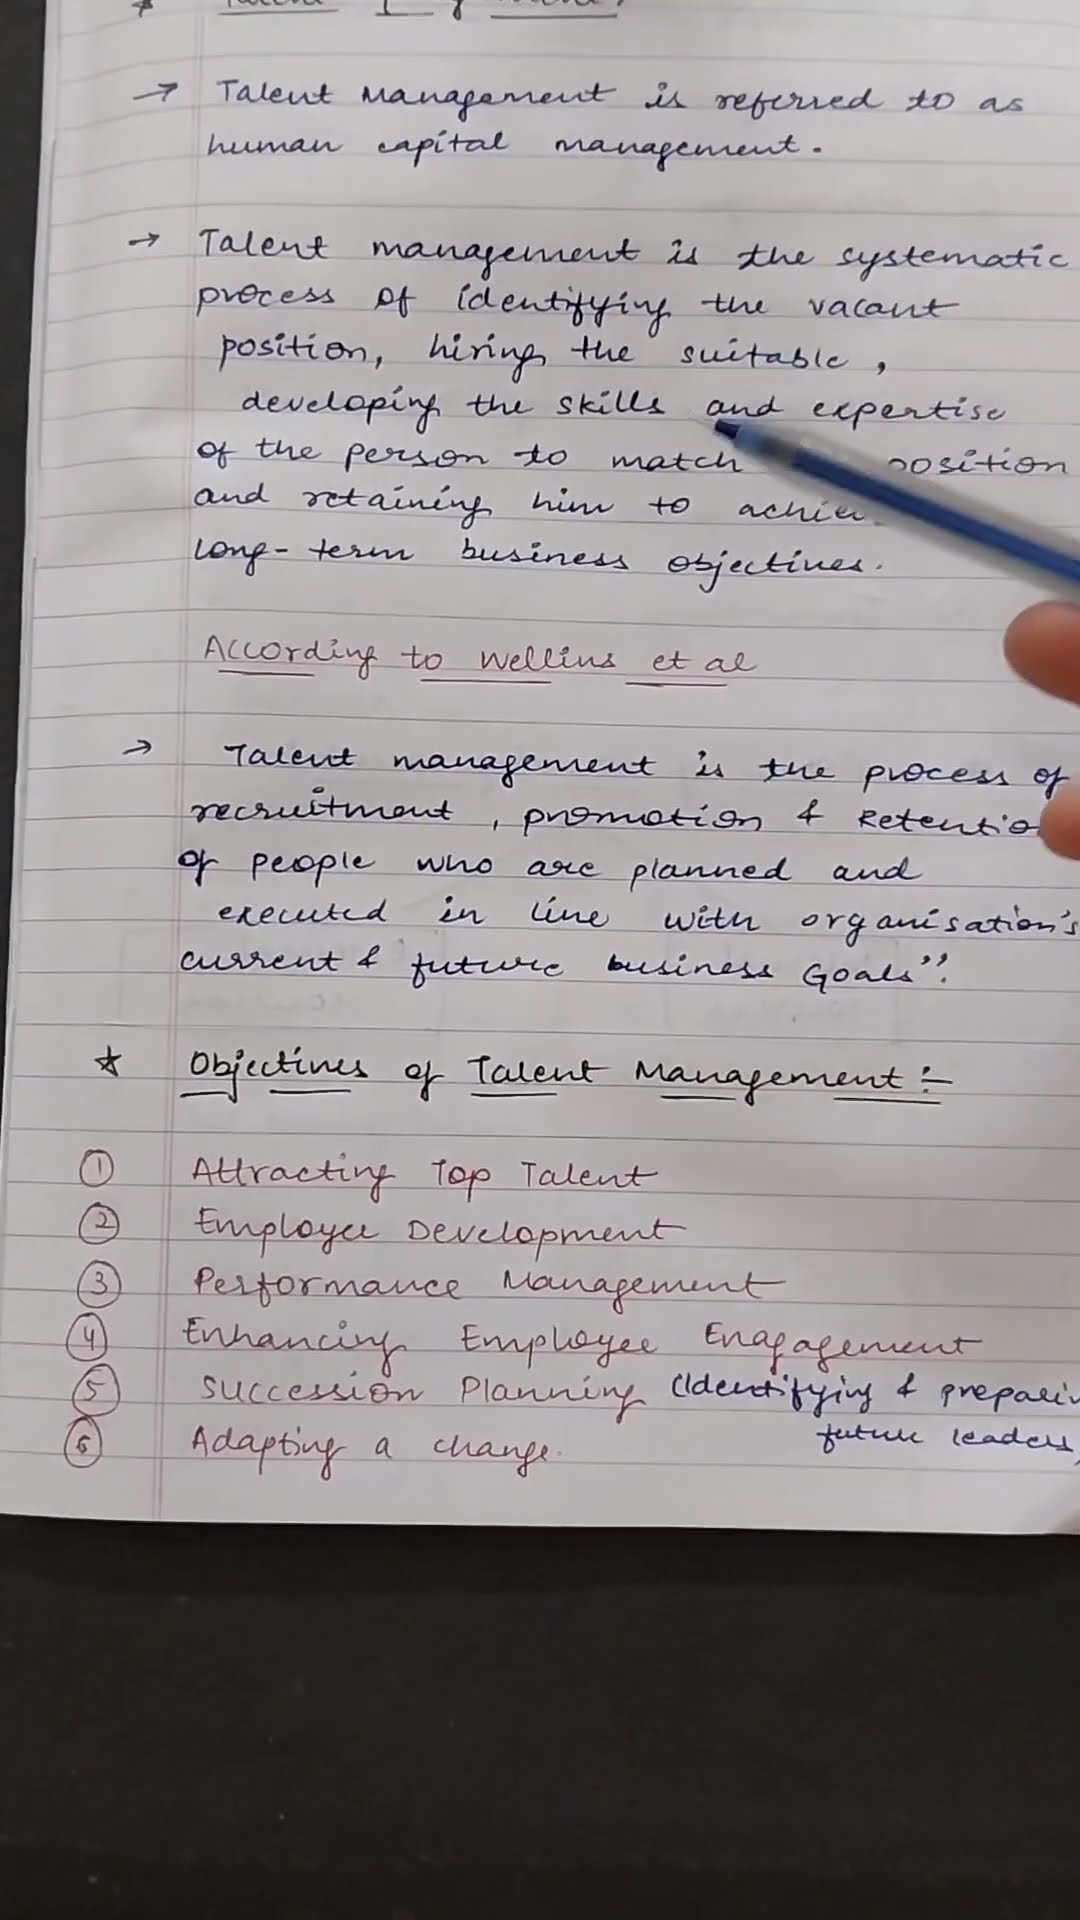 Talent
→ Talent Management is referred to as
human capital management.
→ Talent management is the systematic
process of identifying the vacant
position, hiring the suitable,
developing the skills and expertise
of the person to match position
and retaining him to
long-term business objectives.
According to Wellins et al
→ Talent management is the process of
recruitment, promotion &
of people who are planned and
executed in line with organisation's
current & future business Goals".
☆ Objectives of Talent Management:-
① Attracting Top Talent
② Employee Development
③ Performance Management
④ Enhancing Employee Enagagement
⑤ Succession Planning (Identifying &
future leaders)
⑥ Adapting a change.